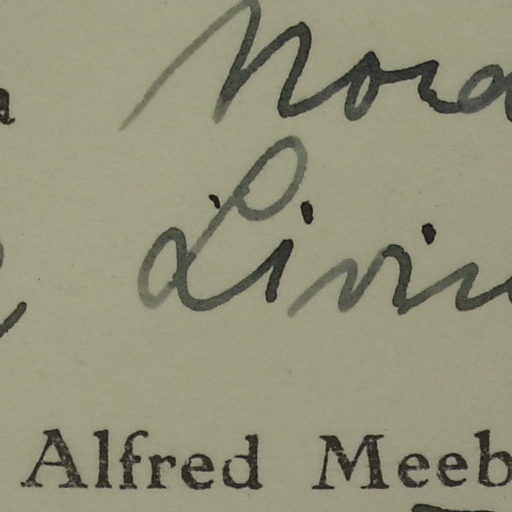 Nora
Livin
Alfred Meeb